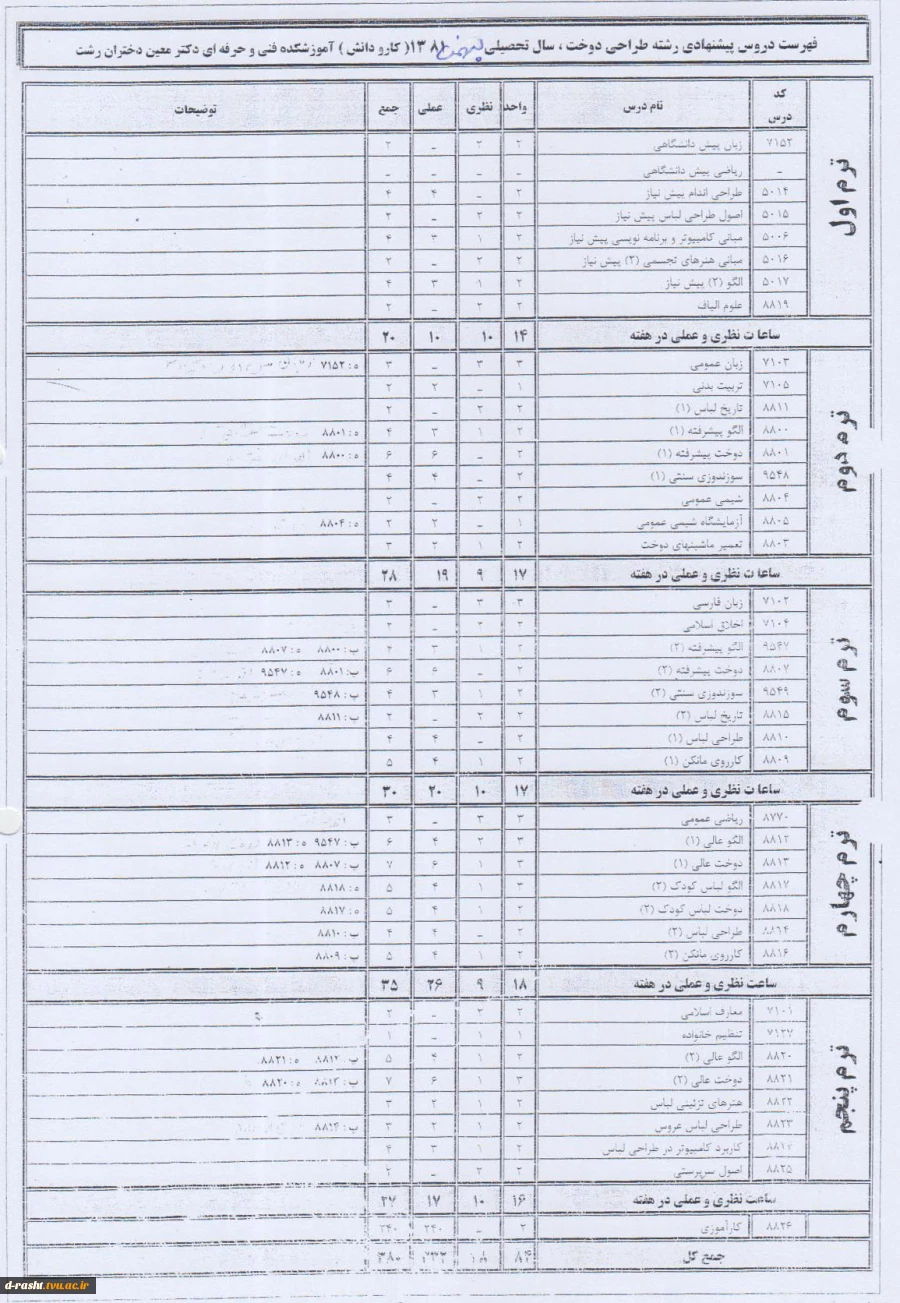 فهرست دروس پیشنهادی رشته طراحی دوخت ، سال تحصیلی ۱۳۸۱ ( کارو دانش ) آموزشکده فنی و حرفه ای دکتر معین دختران رشت
کد درس نام درس واحد نظری عملی جمع توضیحات
ترم اول
۷۱۵۲ زبان پیش دانشگاهی ۲ ۲ _ ۲
_ ریاضی پیش دانشگاهی _ _ _ _
۵۰۱۴ طراحی اندام پیش نیاز ۲ _ ۴ ۴
۵۰۱۵ اصول طراحی لباس پیش نیاز ۲ ۲ _ ۲
۵۰۰۶ مبانی کامپیوتر و برنامه نویسی پیش نیاز ۲ ۱ ۳ ۴
۵۰۱۶ مبانی هنرهای تجسمی (۲) پیش نیاز ۲ ۲ _ ۲
۵۰۱۷ الگو (۲) پیش نیاز ۲ ۱ ۳ ۴
۸۸۱۹ علوم الیاف ۲ ۲ _ ۲
ساعات نظری و عملی در هفته ۱۴ ۱۰ ۱۰ ۲۰
ترم دوم
۷۱۰۳ زبان عمومی ۳ ۳ _ ۳ ه : ۷۱۵۲
۷۱۰۵ تربیت بدنی ۱ _ ۲ ۲
۸۸۱۱ تاریخ لباس (۱) ۲ ۲ _ ۲
۸۸۰۰ الگو پیشرفته (۱) ۲ ۱ ۳ ۴ ه : ۸۸۰۱
۸۸۰۱ دوخت پیشرفته (۱) ۲ _ ۶ ۶ ه : ۸۸۰۰
۹۵۴۸ سوزندوزی سنتی (۱) ۲ _ ۴ ۴
۸۸۰۴ شیمی عمومی ۲ ۲ _ ۲
۸۸۰۵ آزمایشگاه شیمی عمومی ۱ _ ۲ ۲ ه : ۸۸۰۴
۸۸۰۳ تعمیر ماشینهای دوخت ۲ ۱ ۲ ۳
ساعات نظری و عملی در هفته ۱۷ ۹ ۱۹ ۲۸
ترم سوم
۷۱۰۲ زبان فارسی ۳ ۳ _ ۳
۷۱۰۴ اخلاق اسلامی ۲ ۲ _ ۲
۹۵۴۷ الگو پیشرفته (۲) ۲ ۱ ۳ ۴ ب : ۸۸۰۰ ه : ۸۸۰۷
۸۸۰۷ دوخت پیشرفته (۲) ۲ _ ۶ ۶ ب : ۸۸۰۱ ه : ۹۵۴۷
۹۵۴۹ سوزندوزی سنتی (۲) ۲ ۱ ۳ ۴ ب : ۹۵۴۸
۸۸۱۵ تاریخ لباس (۲) ۲ ۲ _ ۲ ب : ۸۸۱۱
۸۸۱۰ طراحی لباس (۱) ۲ _ ۴ ۴
۸۸۰۹ کارروی مانکن (۱) ۲ ۱ ۴ ۵
ساعات نظری و عملی در هفته ۱۷ ۱۰ ۲۰ ۳۰
ترم چهارم
۸۷۷۰ ریاضی عمومی ۳ ۳ _ ۳
۸۸۱۲ الگو عالی (۱) ۳ ۲ ۴ ۶ ب : ۹۵۴۷ ه : ۸۸۱۳
۸۸۱۳ دوخت عالی (۱) ۳ ۱ ۶ ۷ ب : ۸۸۰۷ ه : ۸۸۱۲
۸۸۱۷ الگو لباس کودک (۲) ۳ ۱ ۴ ۵ ه : ۸۸۱۸
۸۸۱۸ دوخت لباس کودک (۲) ۲ ۱ ۴ ۵ ه : ۸۸۱۷
۸۸۱۴ طراحی لباس (۲) ۲ _ ۴ ۴ ب : ۸۸۱۰
۸۸۱۶ کارروی مانکن (۲) ۲ ۱ ۴ ۵ ب : ۸۸۰۹
ساعت نظری و عملی در هفته ۱۸ ۹ ۲۶ ۳۵
ترم پنجم
۷۱۰۱ معارف اسلامی ۲ ۲ _ ۲
۷۱۲۷ تنظیم خانواده ۱ ۱ _ ۱
۸۸۲۰ الگو عالی (۲) ۲ ۱ ۴ ۵ ب : ۸۸۱۲ ه : ۸۸۲۱
۸۸۲۱ دوخت عالی (۲) ۳ ۱ ۶ ۷ ب : ۸۸۱۳ ه : ۸۸۲۰
۸۸۲۲ هنرهای تزئینی لباس ۲ ۱ ۲ ۳
۸۸۲۳ طراحی لباس عروس ۲ ۱ ۲ ۳ ب : ۸۸۱۴
کاربرد کامپیوتر در طراحی لباس ۲ ۱ ۳ ۴
۸۸۲۵ اصول سرپرستی ۲ ۲ _ ۲
ساعت نظری و عملی در هفته ۱۶ ۱۰ ۱۷ ۲۷
۸۸۲۶ کارآموزی ۲ _ ۲۴۰ ۲۴۰
جمع کل ۸۴
d-rasht.tvu.ac.ir